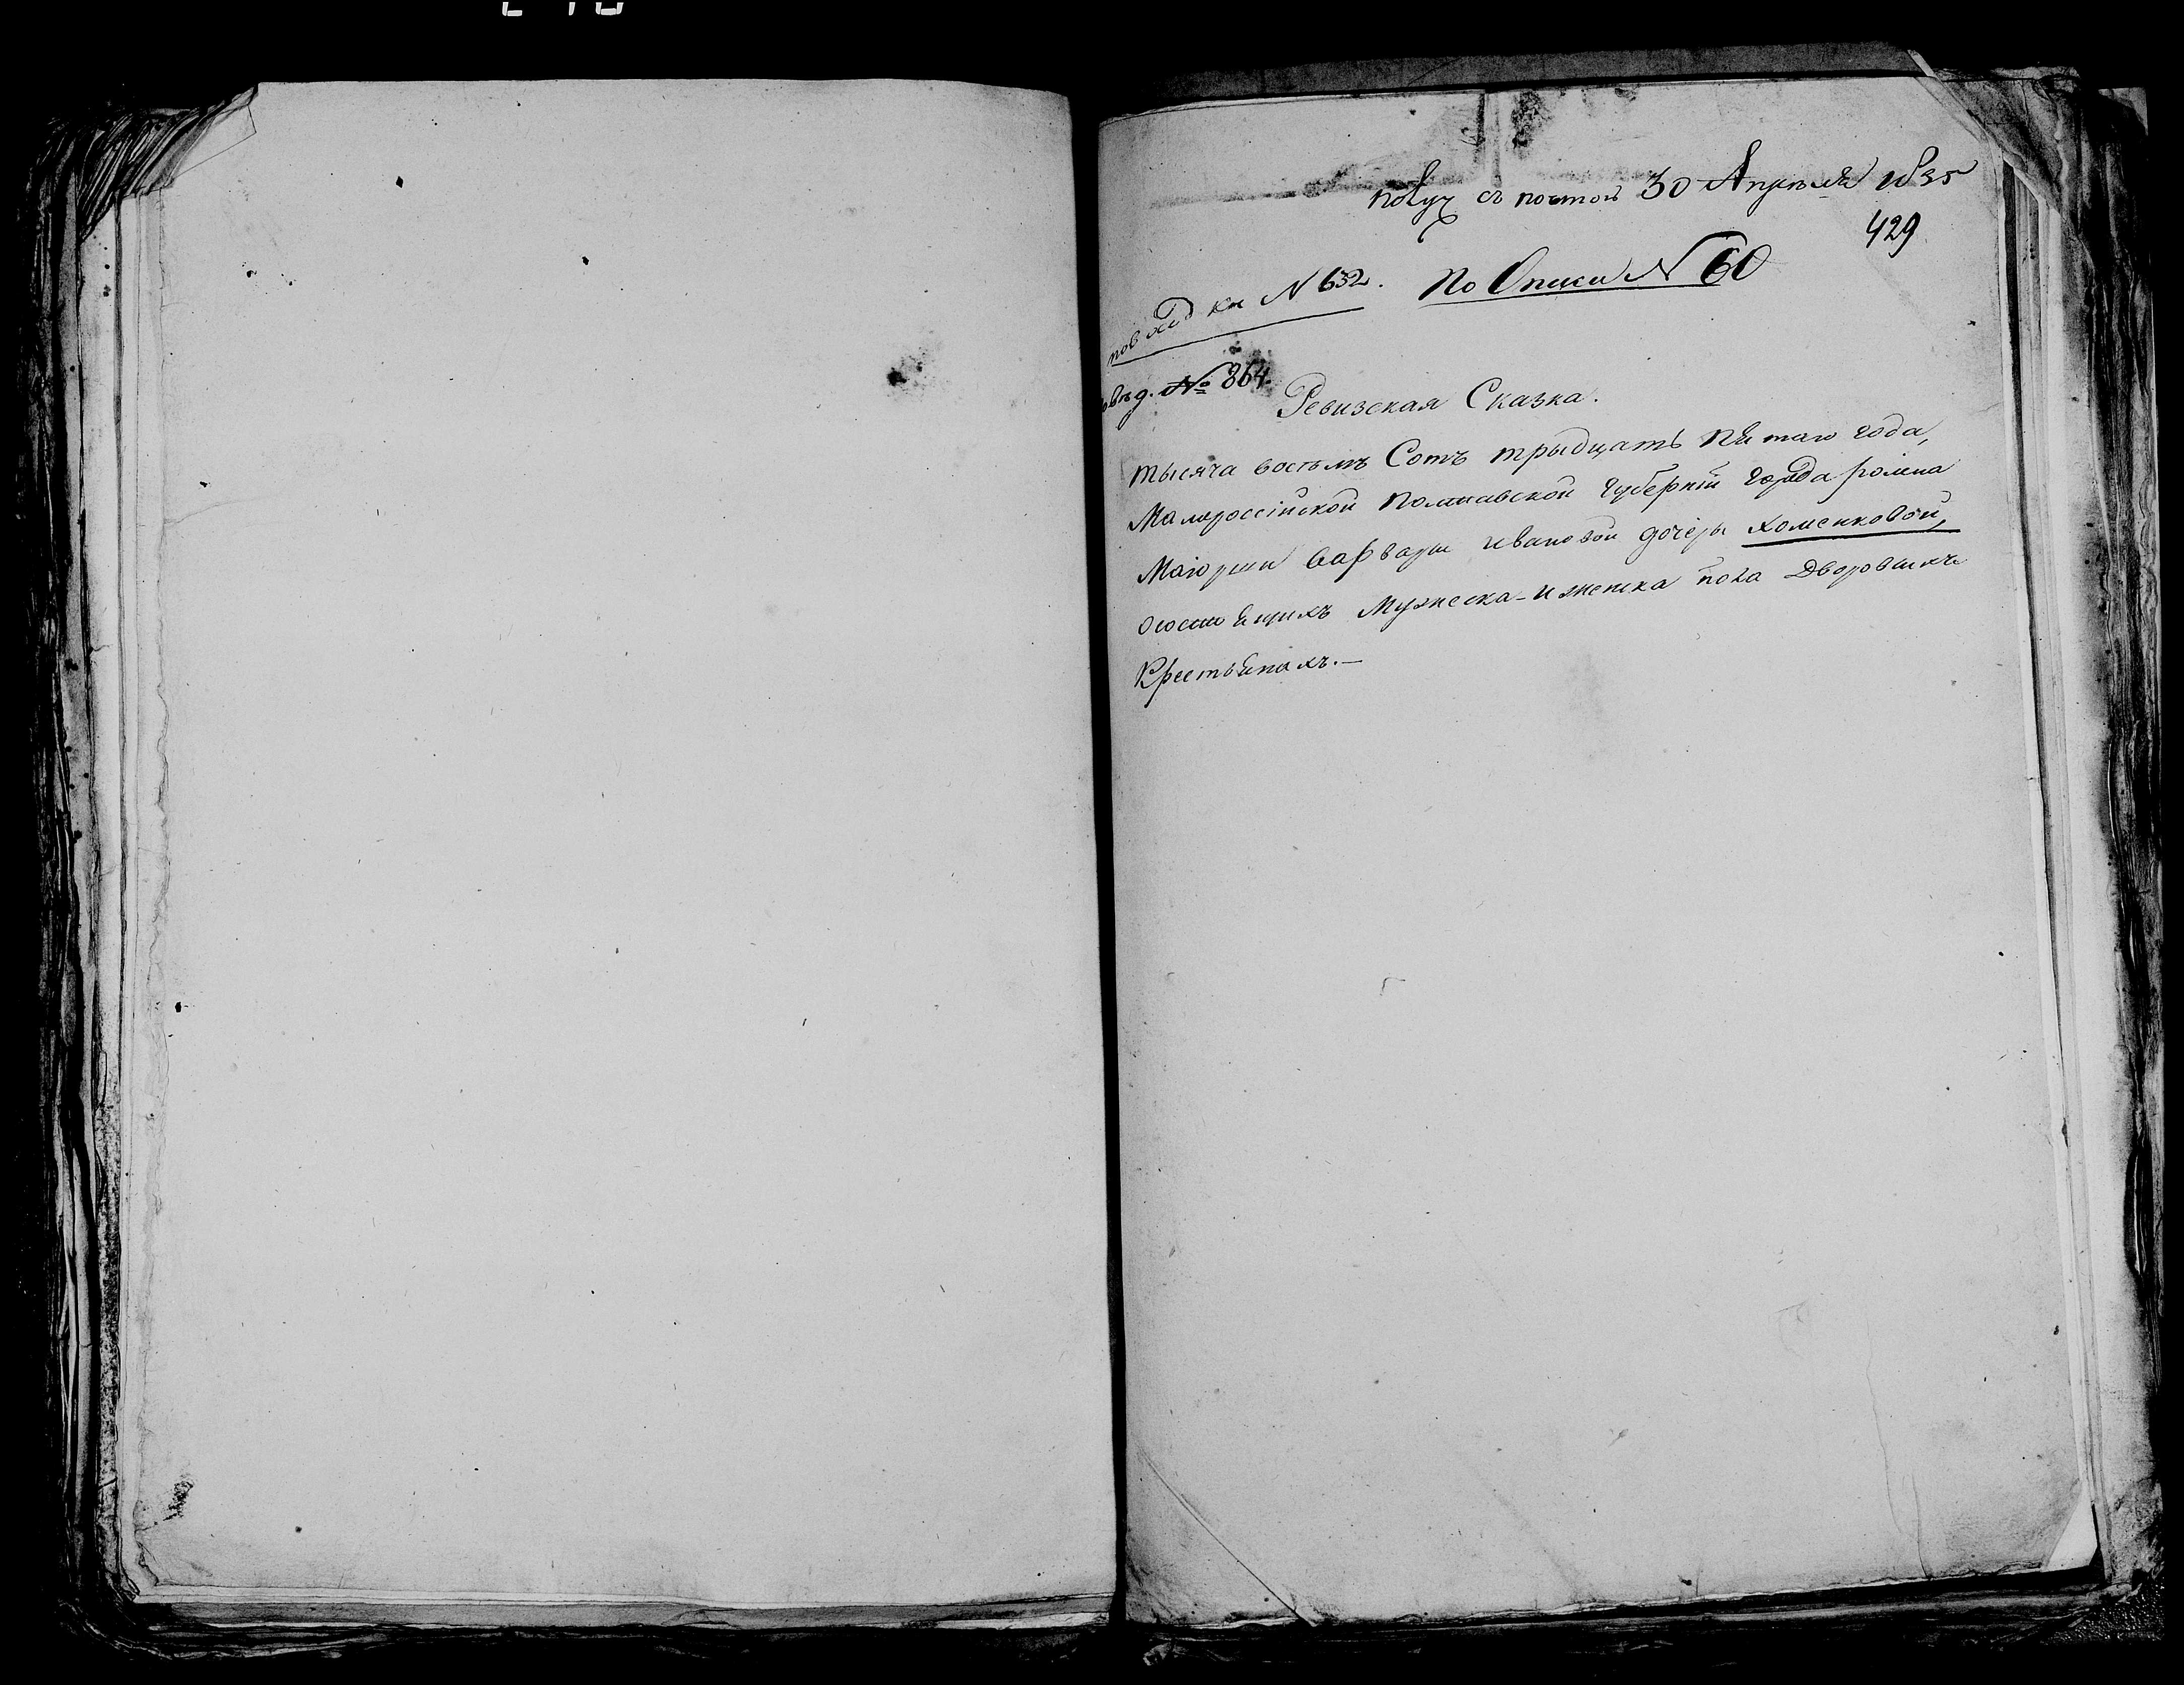 получ съ почтой 30 Апреля 1835
429
По Описи N 60
кн N 632.
№ 864.
Ревизская Сказка.
тысяча восѣмъ Сотъ трыдцать пятаго года,
Малороссійской Полтавской губерніи города ромна
Маіорши варвары ивановой дочери хоменковой,
осостоящихъ Мужеска-и женска пола Дворовыхъ
Крестьянахъ.—